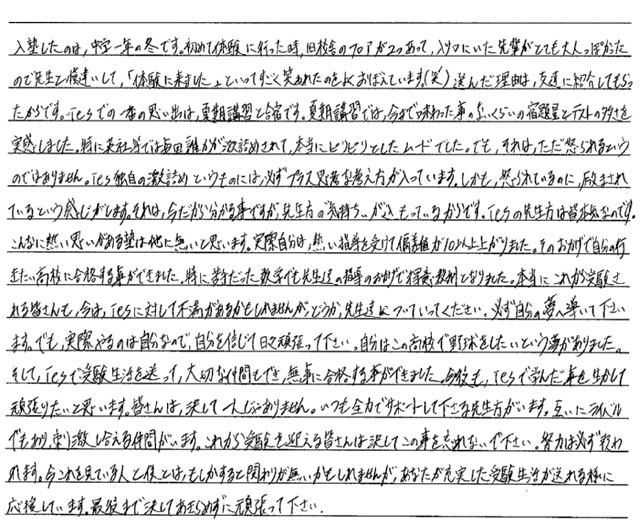 入塾したのは、中学一年の冬です。初めて体験に行った時、旧校舎のフロアが2つあって、入り口にいた先輩がとても大人っぽかった
ので先生と間違いして、「体験に来ました」といってすごく笑われたのをよくおぼえています。(笑) 選んだ理由は、友達に紹介してもらっ
たからです。Tesでの一番の思い出は、夏期講習と合宿です。夏期講習では、今まで味わった事のないくらいの宿題量とテストの多さを
実感しました。特に英社牛では毎回誰かが激詰めされて、本当にピリピリとしたムードでした。でも、それは、ただ怒られるという
のではありません。Tes独自の激詰めというものには、必ずプラス思考な考え方が入っています。しかも、怒られているのに、励まされ
ているという感じがします。それは、今だから分かる事ですが、先生方の気持ちがこもっているからです。Tesの先生方は皆本気なのです。
こんなに熱い思いがある塾は他に無いと思います。実際自分は、熱い指導を受けて偏差値が10以上上がりました。そのおかげで自分の行
きたい高校に合格する事ができました。特に苦手だった数学でも先生達の指導のおかげで得意教科となりました。本当にこれから受験さ
れる皆さんも、今は、Tesに対して不満があるかもしれませんがどうか、先生達についていってください。必ず自分の夢へ導いて下さい
ます。でも、実際やるのは自分なので、自分を信じて日々頑張って下さい。自分はこの高校で野球をしたいという夢がありました。
そして、Tesで受験生活を送って、大切な仲間もでき、無事に合格する事ができました。今後も、Tesで学んだ事を生かして
頑張りたいと思います。皆さんは、決して一人じゃありません。いつも全力でサポートして下さる先生方がいます。互いにライバル
でもあり、刺激し合える仲間がいます。これから受験を迎える皆さんは決してこの事を忘れないで下さい。努力は必ず報わ
れます。今これを見ている人と僕とは、もしかすると関わりが無いかもしれませんが、あなたが充実した受験生活が送れる様に
応援しています。最後まで決してあきらめずに頑張って下さい。